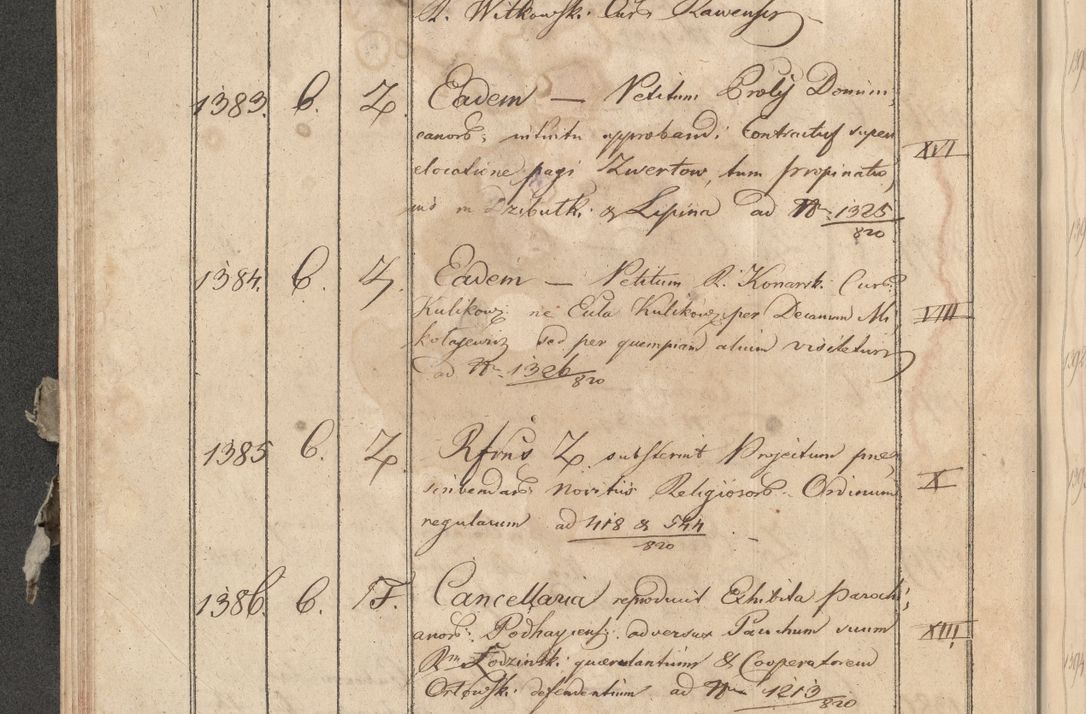 R. Witkowski Cur. Rawensis
1383. C. Z. Eadem — Petitum Prolis Domini,
canorb: intuitu approbandi Contractus super
elocatione pagi Zwertow, tum propinatio,
nis in Dzibutki & Lipina ad Nr. 1325/820
XVI
1384. C. Z. Eadem — Petitum R. Konarski Curb:
Kulikow: ne Ecla Kulikow: per Decanum Mi,
kołajewicz sed per quempiam alium visitetur
ad Nr. 1326/820
VIII
1385 C. Z. Rfrns Z. substernit Projectum prae,
scribendarb Novitiis Religiosorb. Ordinum
regularum ad 418 & 544/820
X
1386. C. F. Cancellaria reproducit Exhibita Parochi,
anorb: Podhayiens: adversus Parochum suum
Rm Łodzinski quaerulantium & Cooperatorem
Orłowski defendentium ad Nr 1213/820
XIII